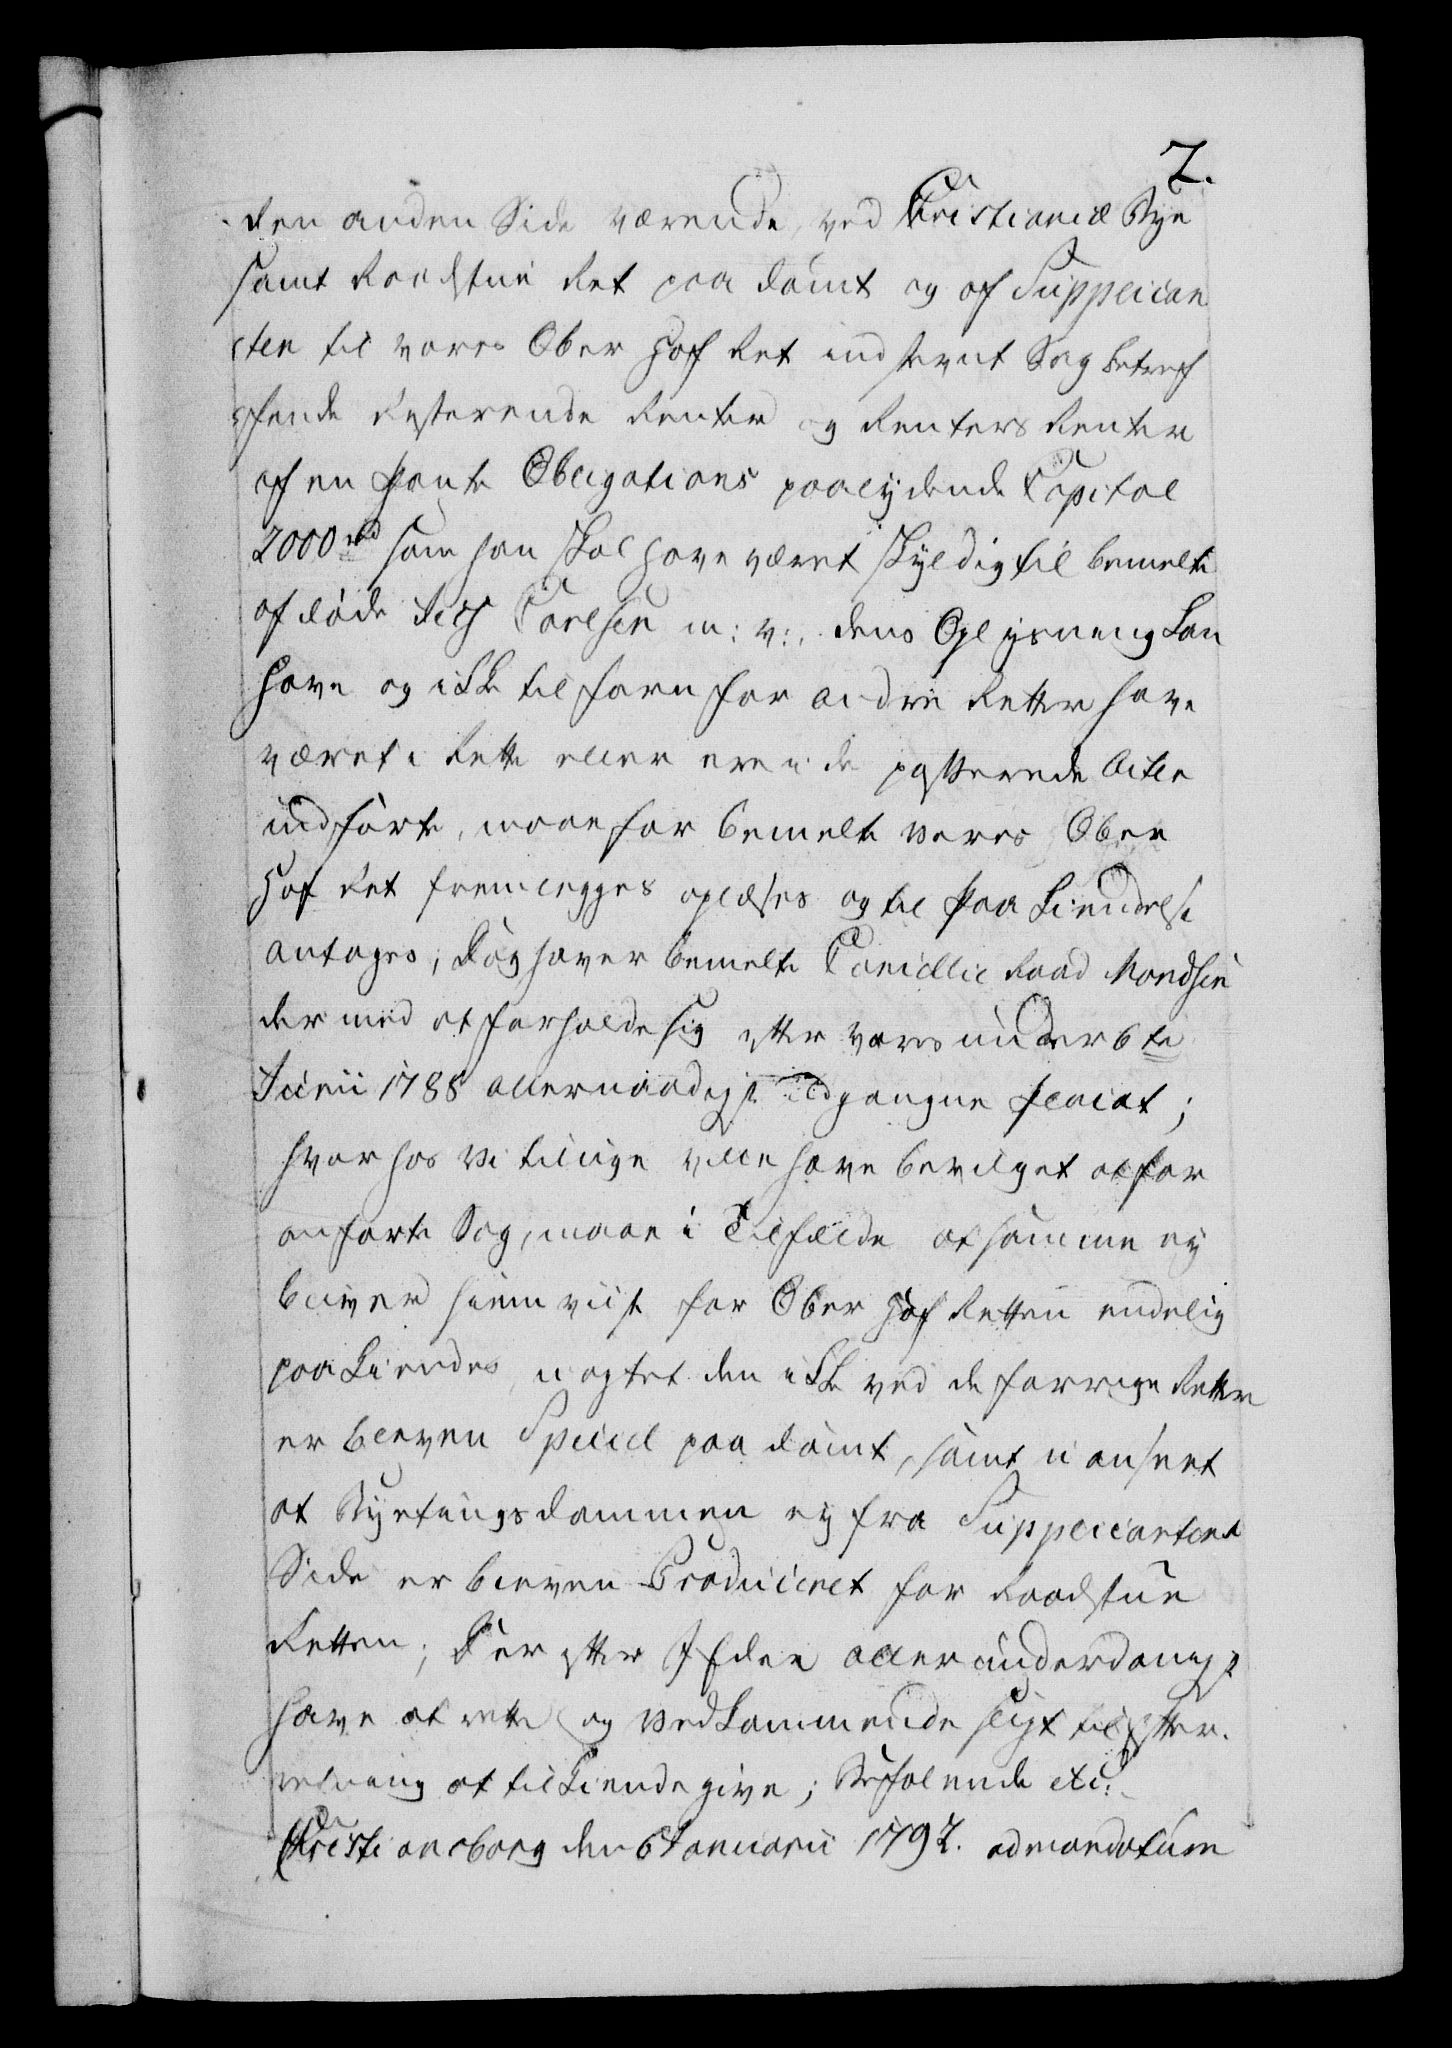 2.
den anden Side værende, ved Christianiæ Bye
samt Raadstue Ret paa dømt og af Supplican
ten til vores Ober Hof Ret ind stevnt Sag betref
fende resterende Renter og Renters Renter
af en Pante Obligations paalydende Capital
2000 rd som han skal have været skyldig til bemelte
afdøde Carlsen m: v:, dens Oplysning kan
have og ikke tilforn for andre Retter have
været i Rette eller ere i de passerede Acter
indførte, maae for bemelte vores Ober
Hof Ret fremlegges oplæses og til Paa kiendelse
antages; dog haver bemelte Cancellie Raad Mandsen
der med at forholde sig efter vores under 6te
Junii 1788 allernaadigst udgangne Placat;
hvor hos vi tillige ville have bevilget at for
anførte Sag, maae i Tilfælde at samme ey
bliver hiemviist for Ober Hof Retten endelig
paa kiendes, uagtet den ikke ved de forrige Retter
er bleven Speciel paa dømt, samt uanseet
at Byetingsdommen ey fra Supplicantens
Side er bleven Produceret for Raadstue
Retten; Der efter I Eder allerunderdanigst
have at rette og vedkommende sligt til Efter.
retning at tilkiende give; Befalende etc:
Christiansborg den 6 Januarii 1792. ad mandatum